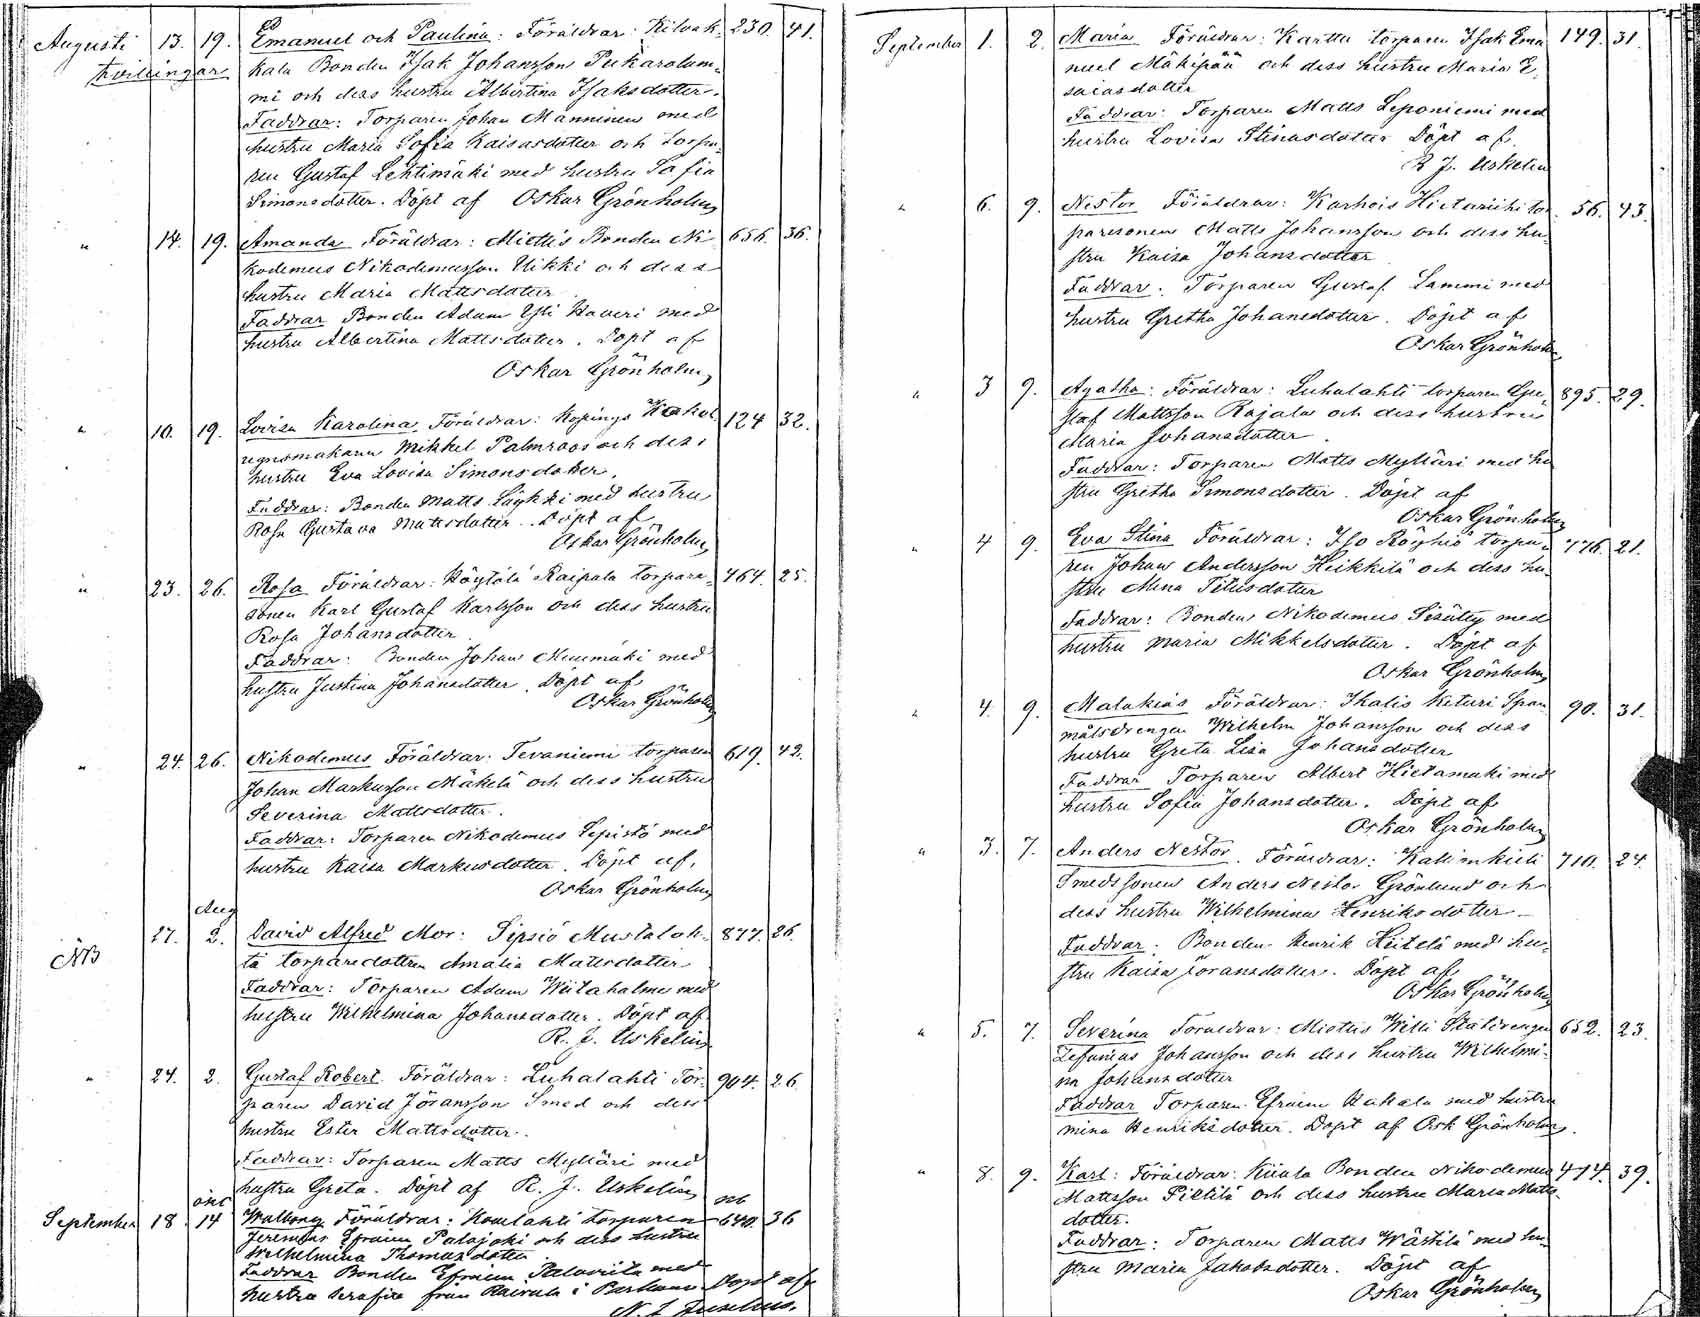 Augusti 13. 19. Emanuel och Paulina: Föräldrar: Kilvak- 230. 41.
tvillingar kala Bonden Isak Johansson Pukarolam-
mi och dess hustru Albertina Isaksdotter.
Faddrar: Torparen Johan Manninen med
hustru Maria Sofia Kaisasdotter och torpa-
ren Gustaf Lehtimäki med hustru Sofia
Simonsdotter. Döpt af Oskar Grönholm
" 14. 19. Amanda Föräldrar: Miettis Bonden Ni- 656. 36.
kodemus Nikodemusson Uikki och dess
hustru Maria Mattsdotter
Faddrar Bonden Adam Yli Haveri med
hustru Albertina Mattsdotter. Döpt af
Oskar Grönholm
" 10. 19. Lovisa Karolina Föräldrar: Köpings Kakel 124 32.
ugnsmakaren Mikkel Palmroos och dess
hustru Eva Lovisa Simonsdotter.
Faddrar: Bonden Matts Säykki med hustru
Rosa Gustava Mattsdotter. Döpt af
Oskar Grönholm
" 23. 26. Rosa Föräldrar: Höytölä Raipala torpare- 464. 25.
sonen Karl Gustaf Karlsson och dess hustru
Rosa Johansdotter
Faddrar: Bonden Johan Niinimäki med
hustru Justina Johansdotter. Döpt af
Oskar Grönholm
" 24. 26. Nikodemus Föräldrar: Tevaniemi torparen 619. 42.
Johan Markusson Mäkelä och dess hustru
Severina Mattsdotter.
Faddrar: Torparen Nikodemus Sepistö med
hustru Kaisa Markusdotter. Döpt af.
Oskar Grönholm
Aug
NB 27. 2. David Alfred Mor: Sipsiö Mustalah- 877. 26.
ti torparedottren Amalia Mattsdotter
Faddrar: Torparen Adam Wiitahalme med
hustru Wilhelmina Johansdotter. Döpt af
R. J. Uskelin
" 24. 2. Gustaf Robert. Föräldrar: Luhalahti Tor- 904. 26.
paren David Jöransson Smed och dess
hustru Ester Mattsdotter.
Faddrar: Torparen Matts Mylläri med
hustru Greta. Döpt af R. J. Uskelin
September 18 14 Walborg Föräldrar: Kovelahti torparen 640. 36
Jeremias Efraim Palojoki och dess hustru
Wilhelmina Thomasdotter
Faddrar Bonden Efraim Palovuta med
hustru Serafia från Raivala i Parkano Döpt af
September 1. 2. Maria Föräldrar: Karttu torparen Isak Ema 149. 31.
nuel Mäkipää och dess hustru Maria E-
saiasdotter
Faddrar: Torparen Matts Leponiemi med
hustru Lovisa Stinasdotter Döpt af
R J. Uskelin
" 6. 9. Nestor Föräldrar: Karhois Hietariihi tor- 56. 43.
paresonen Matts Johansson och dess hu-
stru Kaisa Johansdotter
Faddrar. Torparen Gustaf Lammi med
hustru Gretha Johansdotter. Döpt af
Oskar Grönholm
" 3 9. Agatha: Föräldrar: Luhalahti torparen Gu- 895. 29.
staf Mattsson Rajala och dess hustru
Maria Johansdotter.
Faddrar: Torparen Matts Mylläri med hu
stru Gretha Simonsdotter. Döpt af
Oskar Grönholm
" 4 9. Eva Stina Föräldrar: Iso Röyhiö torpa- 776. 21.
ren Johan Andersson Heikkilä och dess hu-
stru Mina Titusdotter
Faddrar: Bonden Nikodemus Sisätty med
hustru Maria Mikkelsdotter. Döpt af
Oskar Grönholm
" 4. 9. Malakias Föräldrar: Ikalis Keturi Span- 90. 31.
målsdrengen Wilhelm Johansson och dess
hustru Greta Lisa Johansdotter
Faddrar Torparen Albert Hietamäki med
hustru Sofia Johansdotter. Döpt af
Oskar Grönholm
" 3. 7. Anders Nestor. Föräldrar: Kallinkieli 710. 24.
Smedssonen Anders Nestor Grönlund och
dess hustru Wilhelmina Henriksdotter
Faddrar. Bonden Henrik Heitelä med hu-
stru Kaisa Göransdotter. Döpt af
Oskar Grönholm
" 5. 7. Severina Föräldrar: Miettis Willi Ståldrengen 652. 23.
Zefanias Johansson och dess hustru Wilhelmi-
na Johansdotter
Faddrar Torparen Efraim Hakala med hustru
Mina Henriksdotter. Döpt af Osk Grönholm.
" 8. 9. Karl: Föräldrar: Kiiala Bonden Nikodemus 414. 39.
Mattsson Pietilä och dess hustru Maria Matts-
dotter.
Faddrar: Torparen Matts Wästilä med hu-
stru Maria Jakobsdotter. Döpt af
Oskar Grönholm